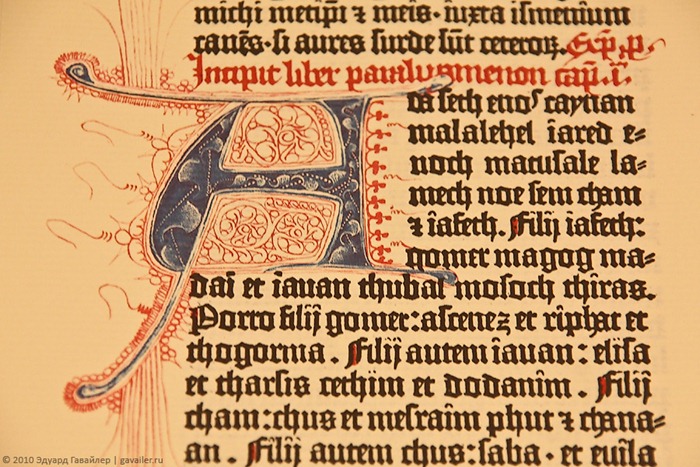 michi metip̄i ⁊ meis. iuxta ismenium
canēs. si aures surde sūt ceteroꝝ. Exp̄. p̄.
Incipit liber paralypomenon cap̄. i.
Adā seth enos caynan
malalehel iared e=
noch matusale la=
mech noe sem cham
⁊ iafeth. Filij iafeth:
gomer magog ma=
dai et iauan thubal mosoch thiras.
Porro filij gomer: ascenez et riphat et
thogorma. Filij autem iauan: elisa
et tharsis cethim et dodanim. Filij
cham: chus et mesraim phut ⁊ chana=
an. Filij autem chus: saba. et euila
© 2010 Эдуард Гавайлер | gavailer.ru